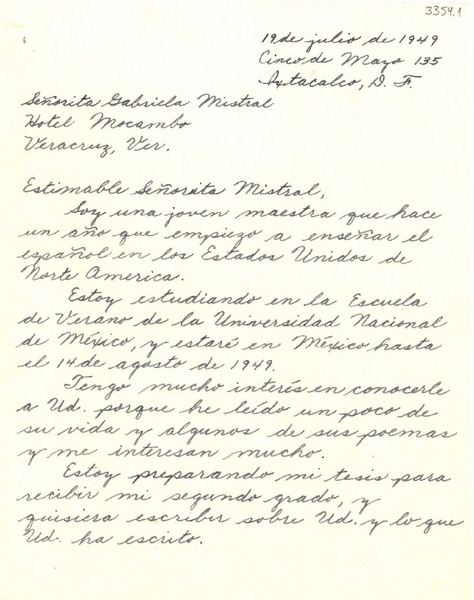 3354.1
19 de julio de 1949
Cinco de Mayo 135
Ixtacalco, D. F.
Señorita Gabriela Mistral
Hotel Mocambo
Veracruz, Ver.
Estimable Señorita Mistral,
Soy una joven maestra que hace
un año que empiezo a enseñar el
español en los Estados Unidos de
Norte America.
Estoy estudiando en la Escuela
de Verano de la Universidad Nacional
de México, y estaré en México hasta
el 14 de agosto de 1949.
Tengo mucho interés en conocerle
a Ud. porque he leído un poco de
su vida y algunos de sus poemas
y me interesan mucho.
Estoy preparando mi tesis para
recibir mi segundo grado, y
quisiera escribir sobre Ud. y lo que
Ud. ha escrito.